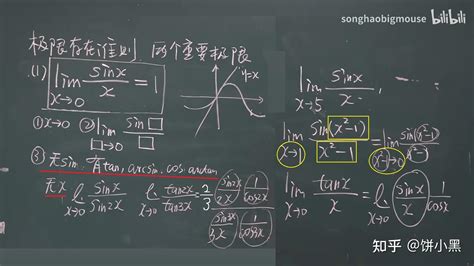 songhaobigmouse bilibili
极限存在准则 两个重要极限
(1) lim x→0 sinx/x = 1
y=x
① x→0 ② lim sin□/□
③ 无sin, 有tan, arcsin, cos, arctan
无x lim x→0 sinx/sin2x
lim x→0 tan2x/tan3x = 2/3 (sin2x/2x)(1/cos2x)
lim x→5 sinx/x, ...
lim x→1 sin(x²-1)/x²-1 = lim x²-1→0 sin(x²-1)/(x²-1)
lim x→0 tanx/x = lim x→0 (sinx/x)(1/cosx)
知乎 @饼小黑